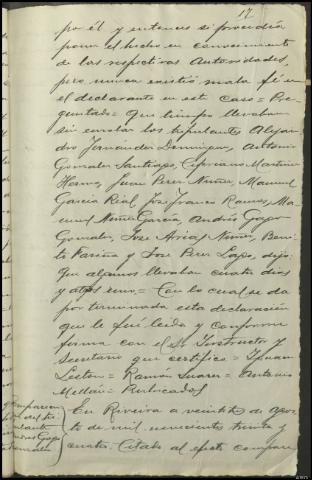 17
por él y entonces si procedia
poner el hecho en conocimiento
de las respectivas Autoridades,
pero nunca existió mala fé en
el declarante en este caso = Pre-
guntado = Que tiempo llevaban
sin enrolar los tripulantes Alejan-
dro Fernandez Dominguez, Antonio
Gonzalez Santiago, Cipriano Martinez
Hermo, Juan Perez Nuñez, Manuel
Garcia Real, Jose Franco Ramos, Ma-
nuel Nuñez Garcia, Andrés Gago
Gonzalez, Jose Arias Nuñez, Beni-
to Pariña y Jose Perez Lago, dijo:
Que algunos llevaban cuatro dias
y otros cinco = Con lo cual se da
por terminada esta declaración
que le fué leida y conforme
firma con el Sr. Instructor y
Secretario que certifico =
Leston = Ramón Suarez = Antonio
= Rubricados
comparecen
Gago
En Riveira a veintitres de Agos-
to de mil novecientos treinta y
cuatro. Citado al efecto compare